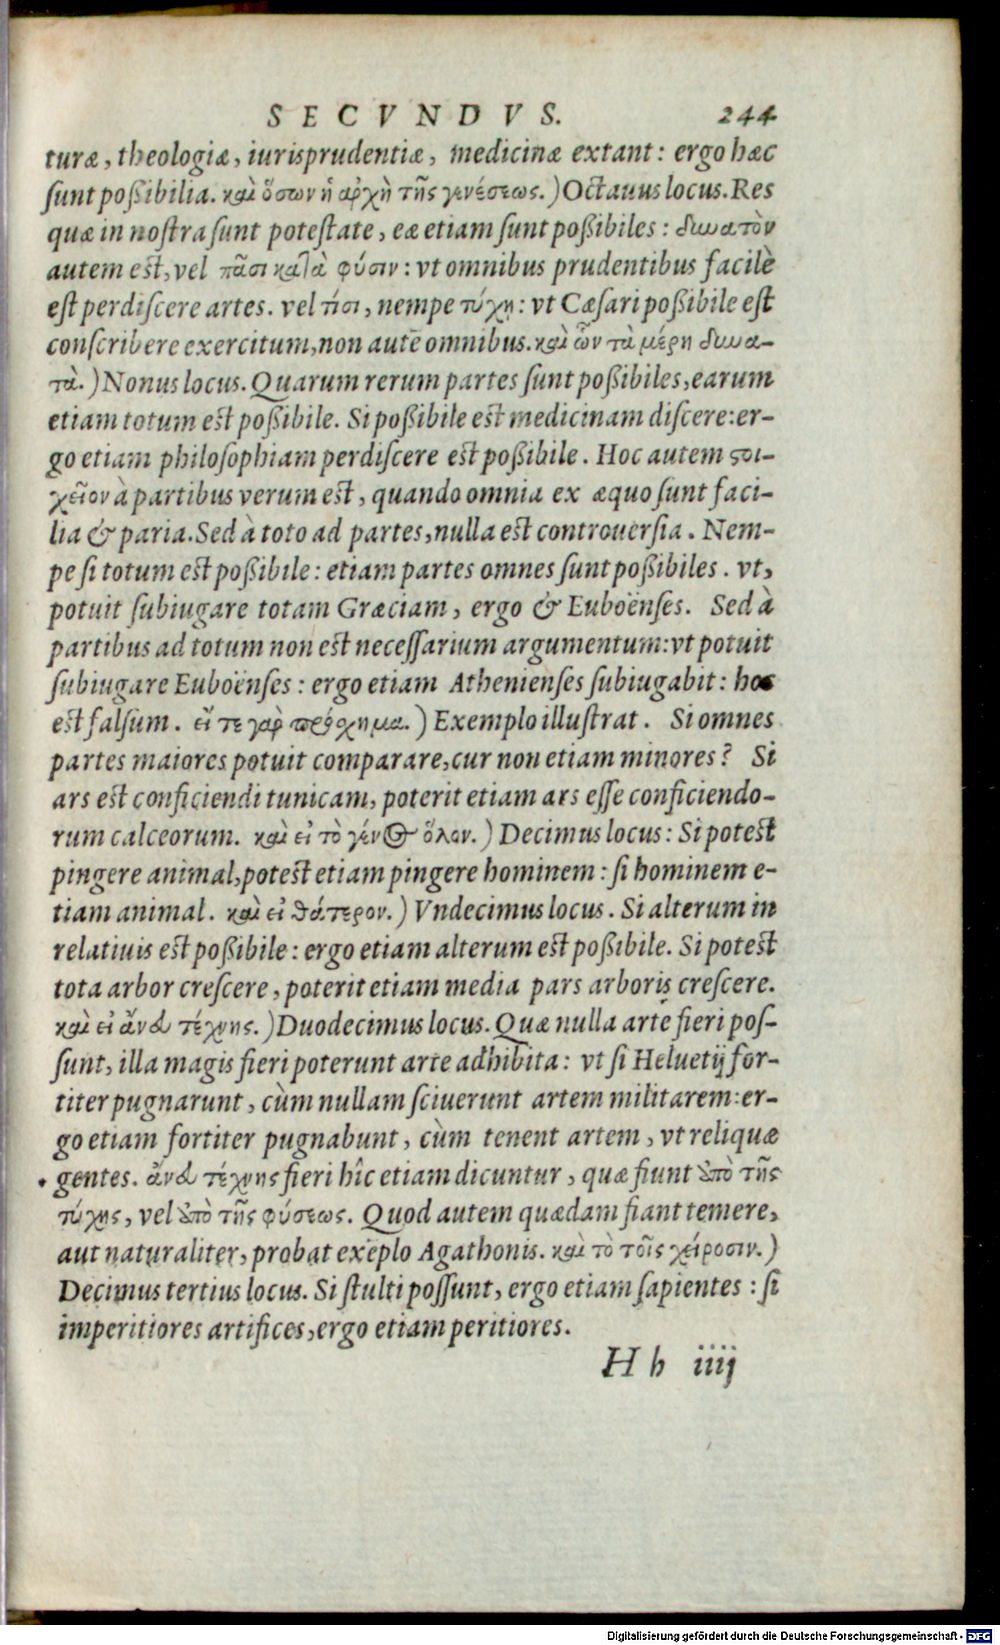 SECVNDVS. 244
turæ, theologiæ, iurisprudentiæ, medicinæ extant: ergo hæc
sunt poßibilia. καὶ ὅσων ἡ ἀρχὴ τῆς γενέσεως.) Octauus locus. Res
quæ in nostra sunt potestate, eæ etiam sunt poßibiles: δυνατὸν
autem est, vel πᾶσι κατὰ φύσιν: vt omnibus prudentibus facilè
est perdiscere artes. vel τίσι, nempe τύχῃ: vt Cæsari poßibile est
conscribere exercitum, non autē omnibus. καὶ ὧν τὰ μέρη δυνα-
τὰ.) Nonus locus. Quarum rerum partes sunt poßibiles, earum
etiam totum est poßibile. Si poßibile est medicinam discere: er-
go etiam philosophiam perdiscere est poßibile. Hoc autem ϛοι-
χεῖον à partibus verum est, quando omnia ex æquo sunt faci-
lia & paria. Sed à toto ad partes, nulla est controuersia. Nem-
pe si totum est poßibile: etiam partes omnes sunt poßibiles. vt,
potuit subiugare totam Græciam, ergo & Euboënses. Sed à
partibus ad totum non est necessarium argumentum: vt potuit
subiugare Euboënses: ergo etiam Athenienses subiugabit: hoc
est falsum. εἴ τε γὰρ πρόχημα.) Exemplo illustrat. Si omnes
partes maiores potuit comparare, cur non etiam minores? Si
ars est conficiendi tunicam, poterit etiam ars esse conficiendo-
rum calceorum. καὶ εἰ τὸ γένος ὅλον.) Decimus locus: Si potest
pingere animal, potest etiam pingere hominem: si hominem e-
tiam animal. καὶ εἰ θάτερον.) Vndecimus locus. Si alterum in
relatiuis est poßibile: ergo etiam alterum est poßibile. Si potest
tota arbor crescere, poterit etiam media pars arboris crescere.
καὶ εἰ ἄνευ τέχνης.) Duodecimus locus. Quæ nulla arte fieri pos-
sunt, illa magis fieri poterunt arte adhibita: vt si Heluetij for-
titer pugnarunt, cùm nullam sciuerunt artem militarem: er-
go etiam fortiter pugnabunt, cùm tenent artem, vt reliquæ
gentes. ἄνευ τέχνης fieri hîc etiam dicuntur, quæ fiunt ὑπὸ τῆς
τύχης, vel ὑπὸ τῆς φύσεως. Quod autem quædam fiant temere,
aut naturaliter, probat exēplo Agathonis. καὶ τὸ τοῖς χείροσιν.)
Decimus tertius locus. Si stulti possunt, ergo etiam sapientes: si
imperitiores artifices, ergo etiam peritiores.
H h iiij
Digitalisierung gefördert durch die Deutsche Forschungsgemeinschaft - DFG